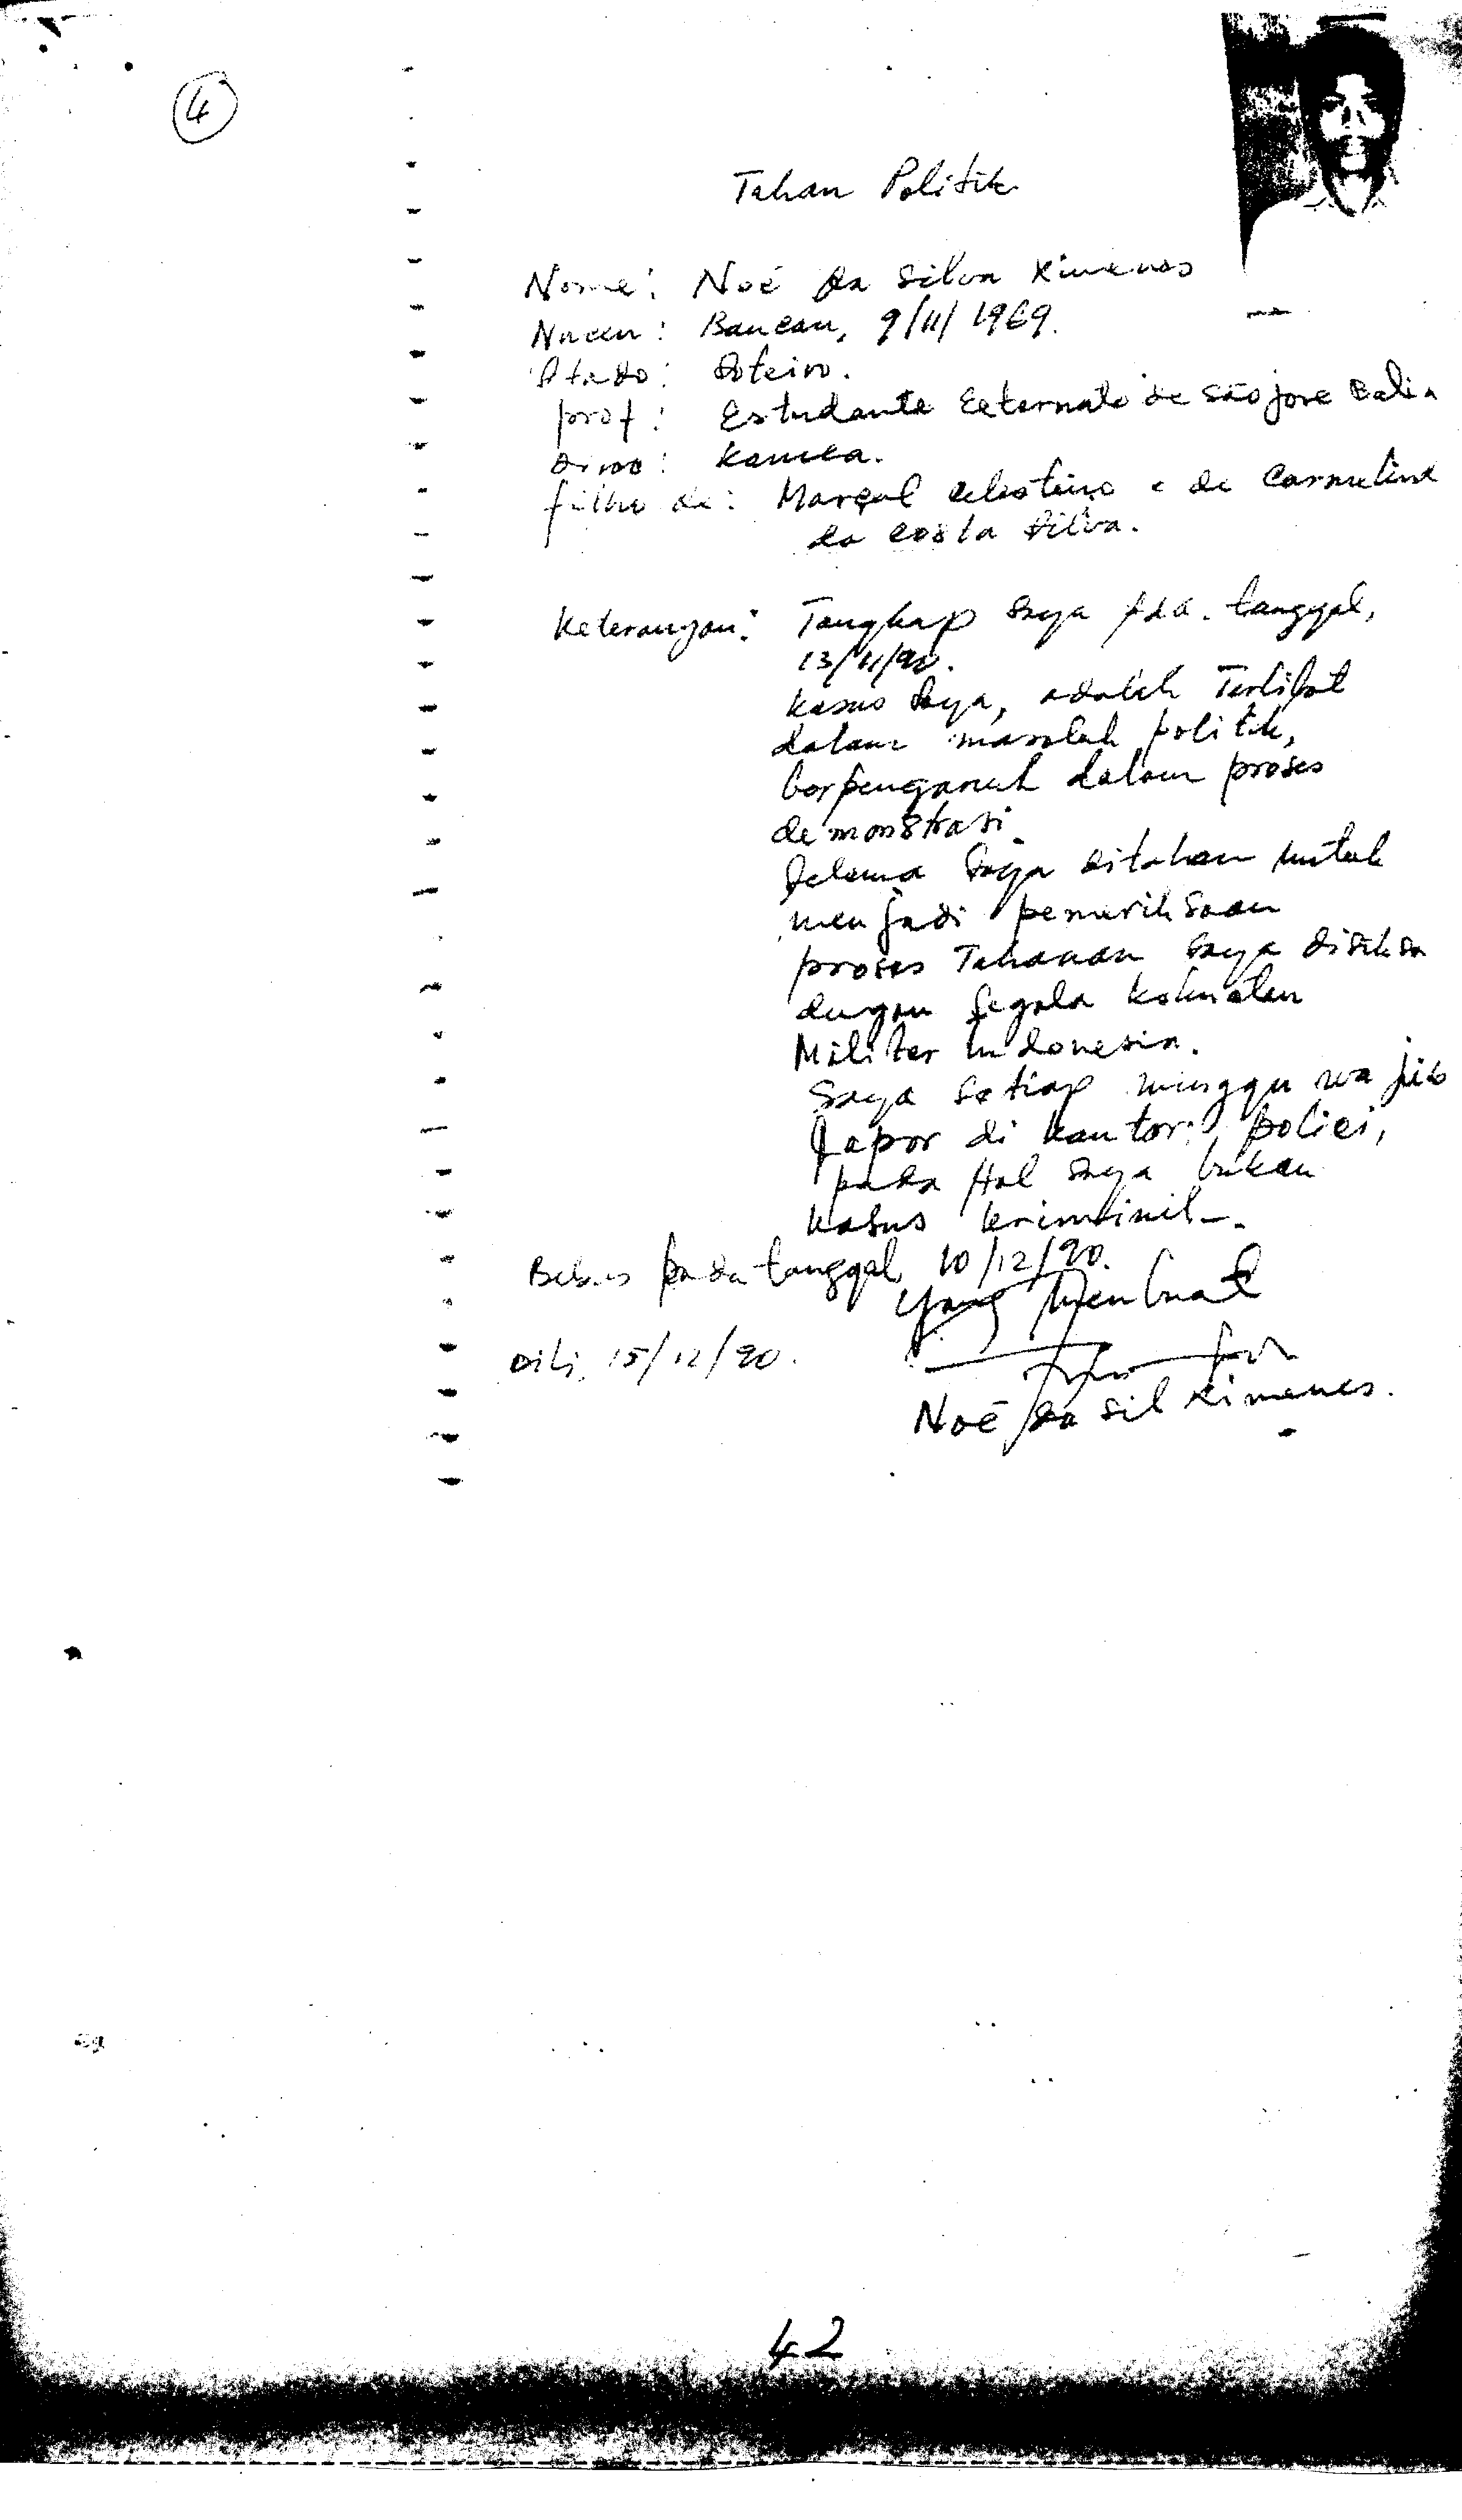 4
Tahan Politik
Nome: Noé da Silva Ximenes
Nacen: Baucau, 9/11/1969.
Stado: Soteiro.
prof: Estudante Externato de São jose Balia
: Kamea.
filho de: Marçal Celestino e de Carmelina
da Costa Silva.
Keterangan: Tangkap Saya pda. tanggal,
13/11/90.
Kasus Saya, adalah Terlibat
dalam masalah politik,
berpengaruh dalam proses
demonstrasi.
Selama Saya ditahan untuk
menjadi pemeriksaan
proses Tahanan Saya disiksa
dengan segala kekuatan
Militer Indonesia.
Saya setiap minggu wa jib
lapor di kantor polici,
pada Hal Saya bukan
kasus kriminil-.
Bebas pada tanggal, 10/12/90.
Yang Membuat
Dili, 15/12/90.
Noé da Sil Ximenes.
42